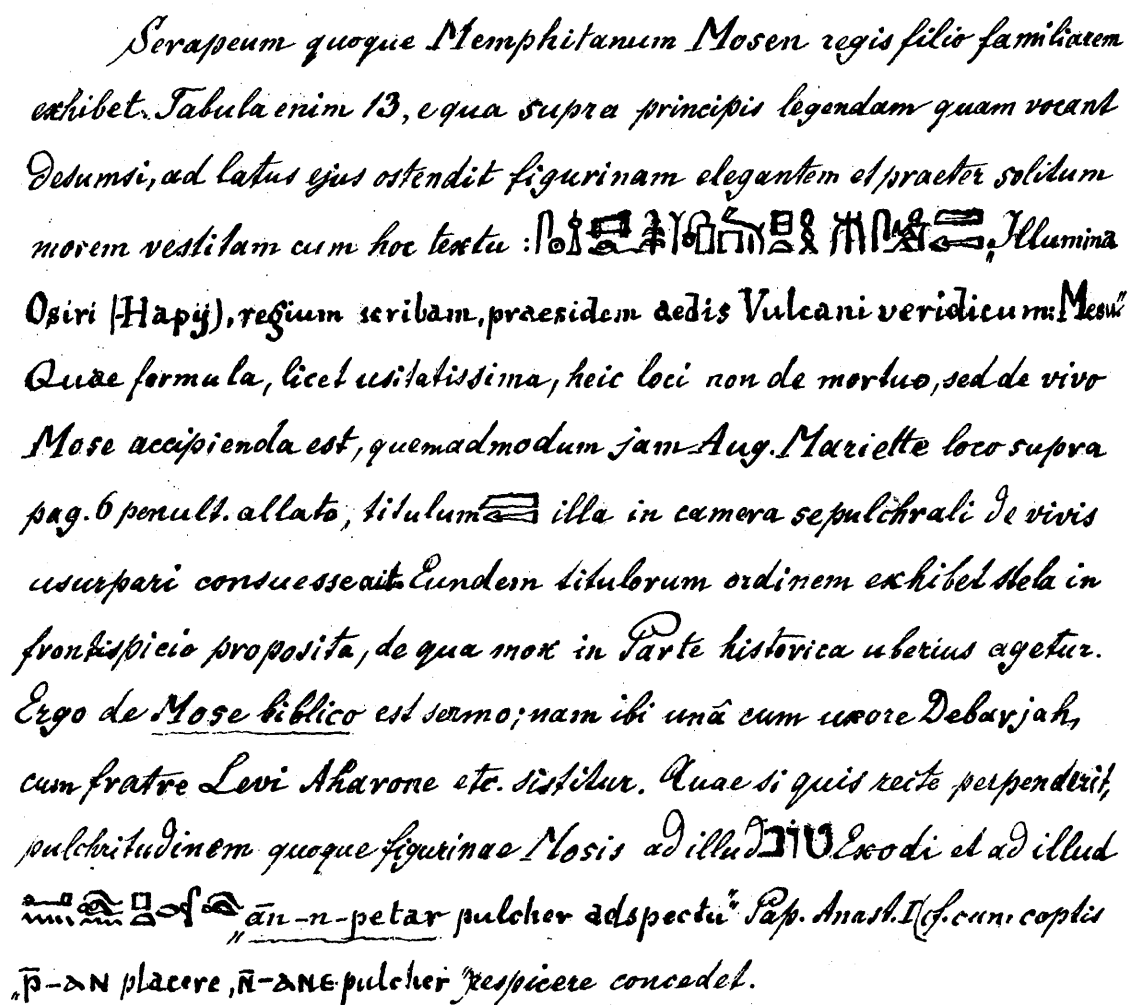 Serapeum quoque Memphitanum Mosen regis filio familiarem
exhibet. Tabula enim 13, e qua supra principis legendam quam vocant
desumsi, ad latus ejus ostendit figurinam elegantem et praeter solitum
morem vestitam cum hoc textu : „Illumina
Osiri (Hapij), regium scribam, praesidem aedis Vulcani veridicum: Mesu“
Quae formula, licet usitatissima, heic loci non de mortuo, sed de vivo
Mose accipienda est, quemadmodum jam Aug. Mariette loco supra
pag. 6 penult. allato, titulum illa in camera sepulchrali de vivis
usurpari consuesse ait. Eundem titulorum ordinem exhibet stela in
frontispicio proposita, de qua mox in Parte historica uberius agetur.
Ergo de Mose biblico est sermo; nam ibi unâ cum uxore Debarjah,
cum fratre Levi Aharone etc. sistitur. Quae si quis recte perpenderit,
pulchritudinem quoque figurinae Mosis ad illud טוב Exodi et ad illud
„ān-n-petar pulcher adspectu“ Pap. Anast. I (cf. cum coptis
„p̄-ⲁⲛ placere, n̄-ⲁⲛⲉ pulcher“ respicere concedet.